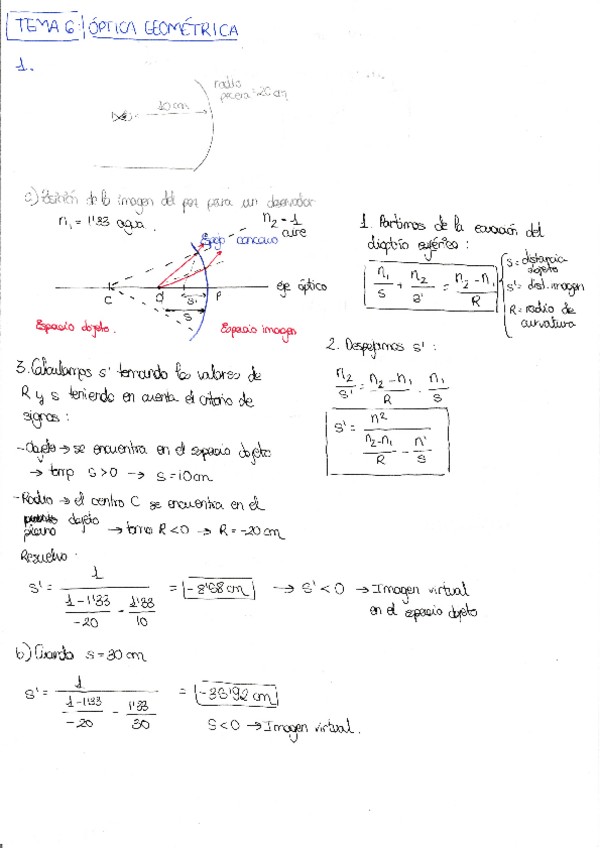 TEMA 6: ÓPTICA GEOMÉTRICA
1.
10 cm
radio
pecera = 20 cm
a) Posición de la imagen del pez para un observador
n₁ = 1'33 agua.
n₂ = 1
aire
Espejo concavo
C
O
s'
s
F
eje óptico
Espacio objeto.
Espacio imagen
1. Partimos de la ecuación del
dioptrio esférico:
n₁/s + n₂/s' = n₂ - n₁/R
s = distancia
objeto
s' = dist. imagen
R = radio de
curvatura
2. Despejamos s':
n₂/s' = n₂ - n₁/R - n₁/s
s' = n²/(n₂-n₁/R - n'/s)
3. Calculamos s' tomando los valores de
R y s teniendo en cuenta el criterio de
signos:
- Objeto → se encuentra en el espacio objeto
→ tomo s > 0 → s = 10 cm
- Radio → el centro C se encuentra en el
plano objeto → tomo R < 0 → R = -20 cm
Resuelvo:
s' = 1/(1-1'33/-20 - 1'33/10) = -8'58 cm → s' < 0 → Imagen virtual
en el espacio objeto
b) Cuando s = 30 cm
s' = 1/(1-1'33/-20 - 1'33/30) = -35'92 cm
s < 0 → Imagen virtual.